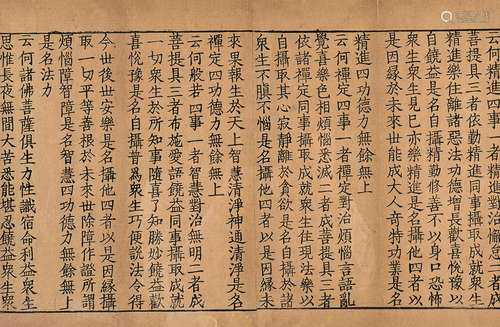 四事一者精進對治懈怠二者成
菩提具三者依勤精進同事攝取成就衆生
精進樂住離諸惡法功德增長歡喜悅豫以
自饒益是名自攝精勤修善不以身口恐怖
衆生衆生見已亦樂精進是名攝他四者以
是因緣於未來世能成大人奇特功業是名
精進四功德力無餘無上
云何禪定四事一者禪定對治煩惱言語亂
覺喜樂色相煩惱悉滅二者成菩提具三者
依諸禪定同事攝取成就衆生住現法樂以
自攝取其心寂靜離於貪欲是名自攝於諸
衆生不瞋不惱是名攝他四者以是因緣未
來果報生於天上智慧清淨神通清淨是名
禪定四功德力無餘無上
云何般若四事一者智慧對治無明二者成
菩提具三者布施愛語饒益同事攝取成就
一切衆生於所知事隨喜了知勝妙饒益歡
喜悅豫是名自攝普為衆生巧便說法令得
今世後世安樂是名攝他四者以是因緣
取一切平等善根於未來世除障作證所謂
煩惱障智障是名智慧四功德力無餘無上
是名法力
云何諸佛菩薩俱生力性識宿命利益衆生
思惟長夜無間大苦悉能堪忍饒益衆生衆